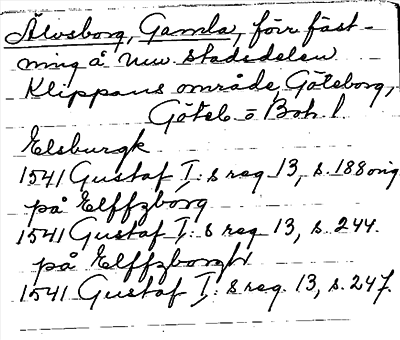 Älvsborg, Gamla, förr fäst-
ning å nuv. stadsdelen
Klippans område, Göteborg,
Göteb. o Boh. l.
Elsburgk
1541 Gustaf I:s reg. 13, s. 188 orig
på Elffzborg
1541 Gustaf I:s reg 13, s. 244.
på Elffzborgh
1541 Gustaf I:s reg. 13, s. 247.